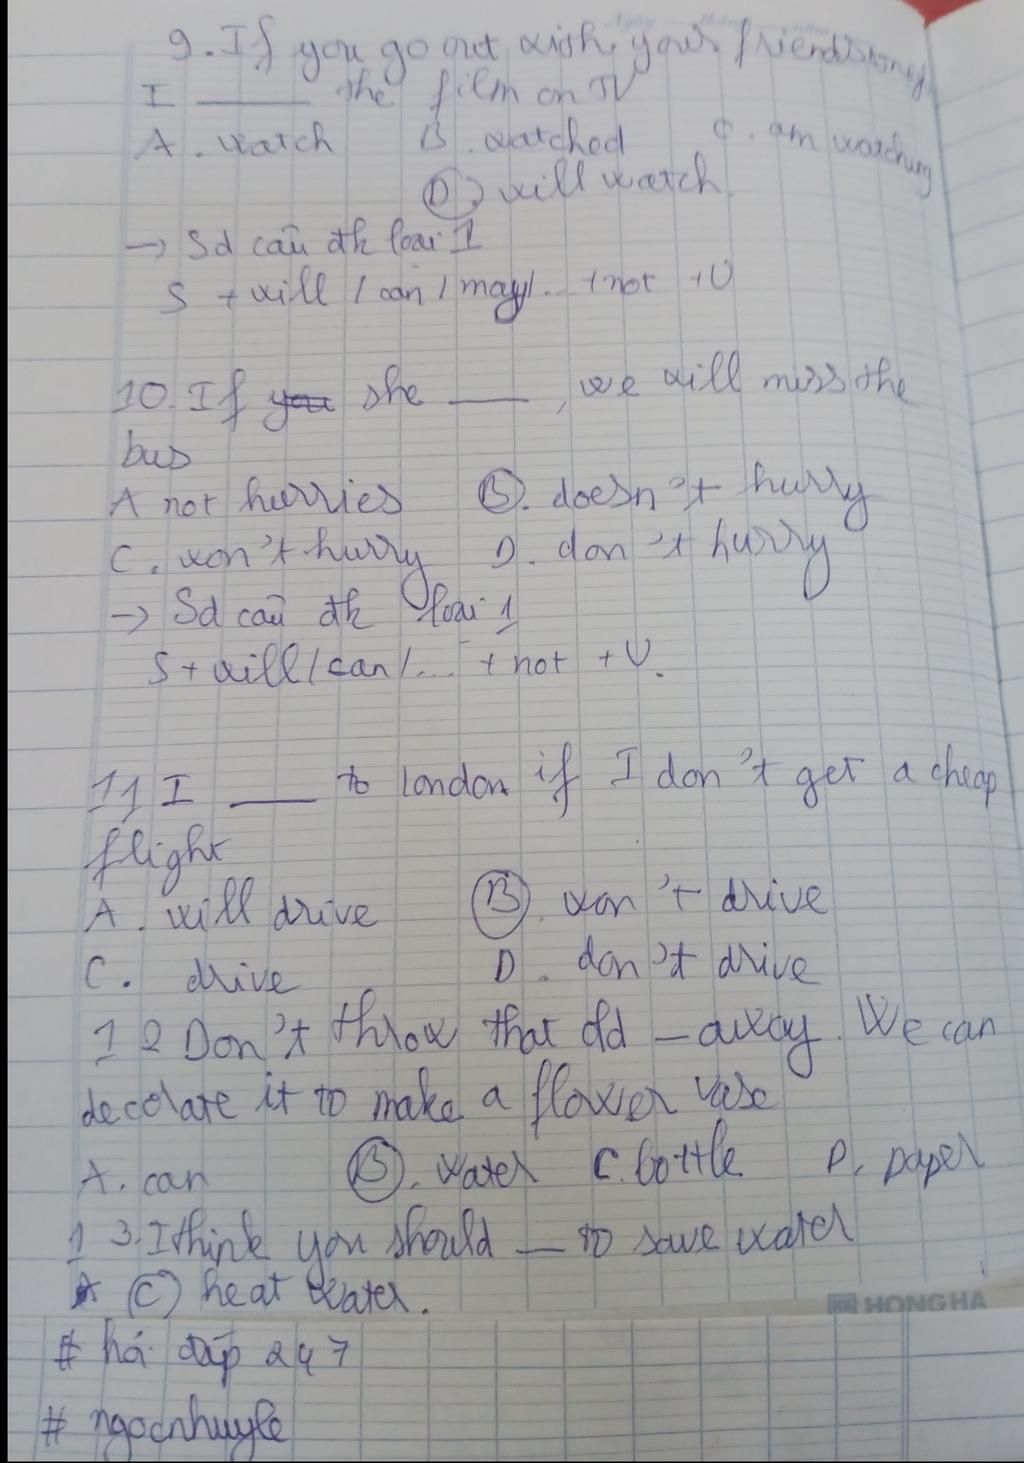 9. If you go out with your friends tonight
I ______ the film on TV
A. watch B. watched C. am watching
D. will watch
-> Sd câu đk loại 1
S + will / can / may/... + not + V
10. If you she ____, we will miss the
bus
A not hurries B. doesn't hurry
C. won't hurry D. don't hurry
-> Sd câu đk loại 1
S + will / can /... + not + V.
11 I ____ to london if I don't get a cheap
flight
A. will drive B. won't drive
C. drive D. don't drive
12 Don't throw that old _ away. We can
decolate it to make a flower vase
A. can B. water C. bottle D. paper
13. I think you should __ to save water
A (C) heat water.
HONG HA
# hỏi đáp 247
# ngocnhuyle